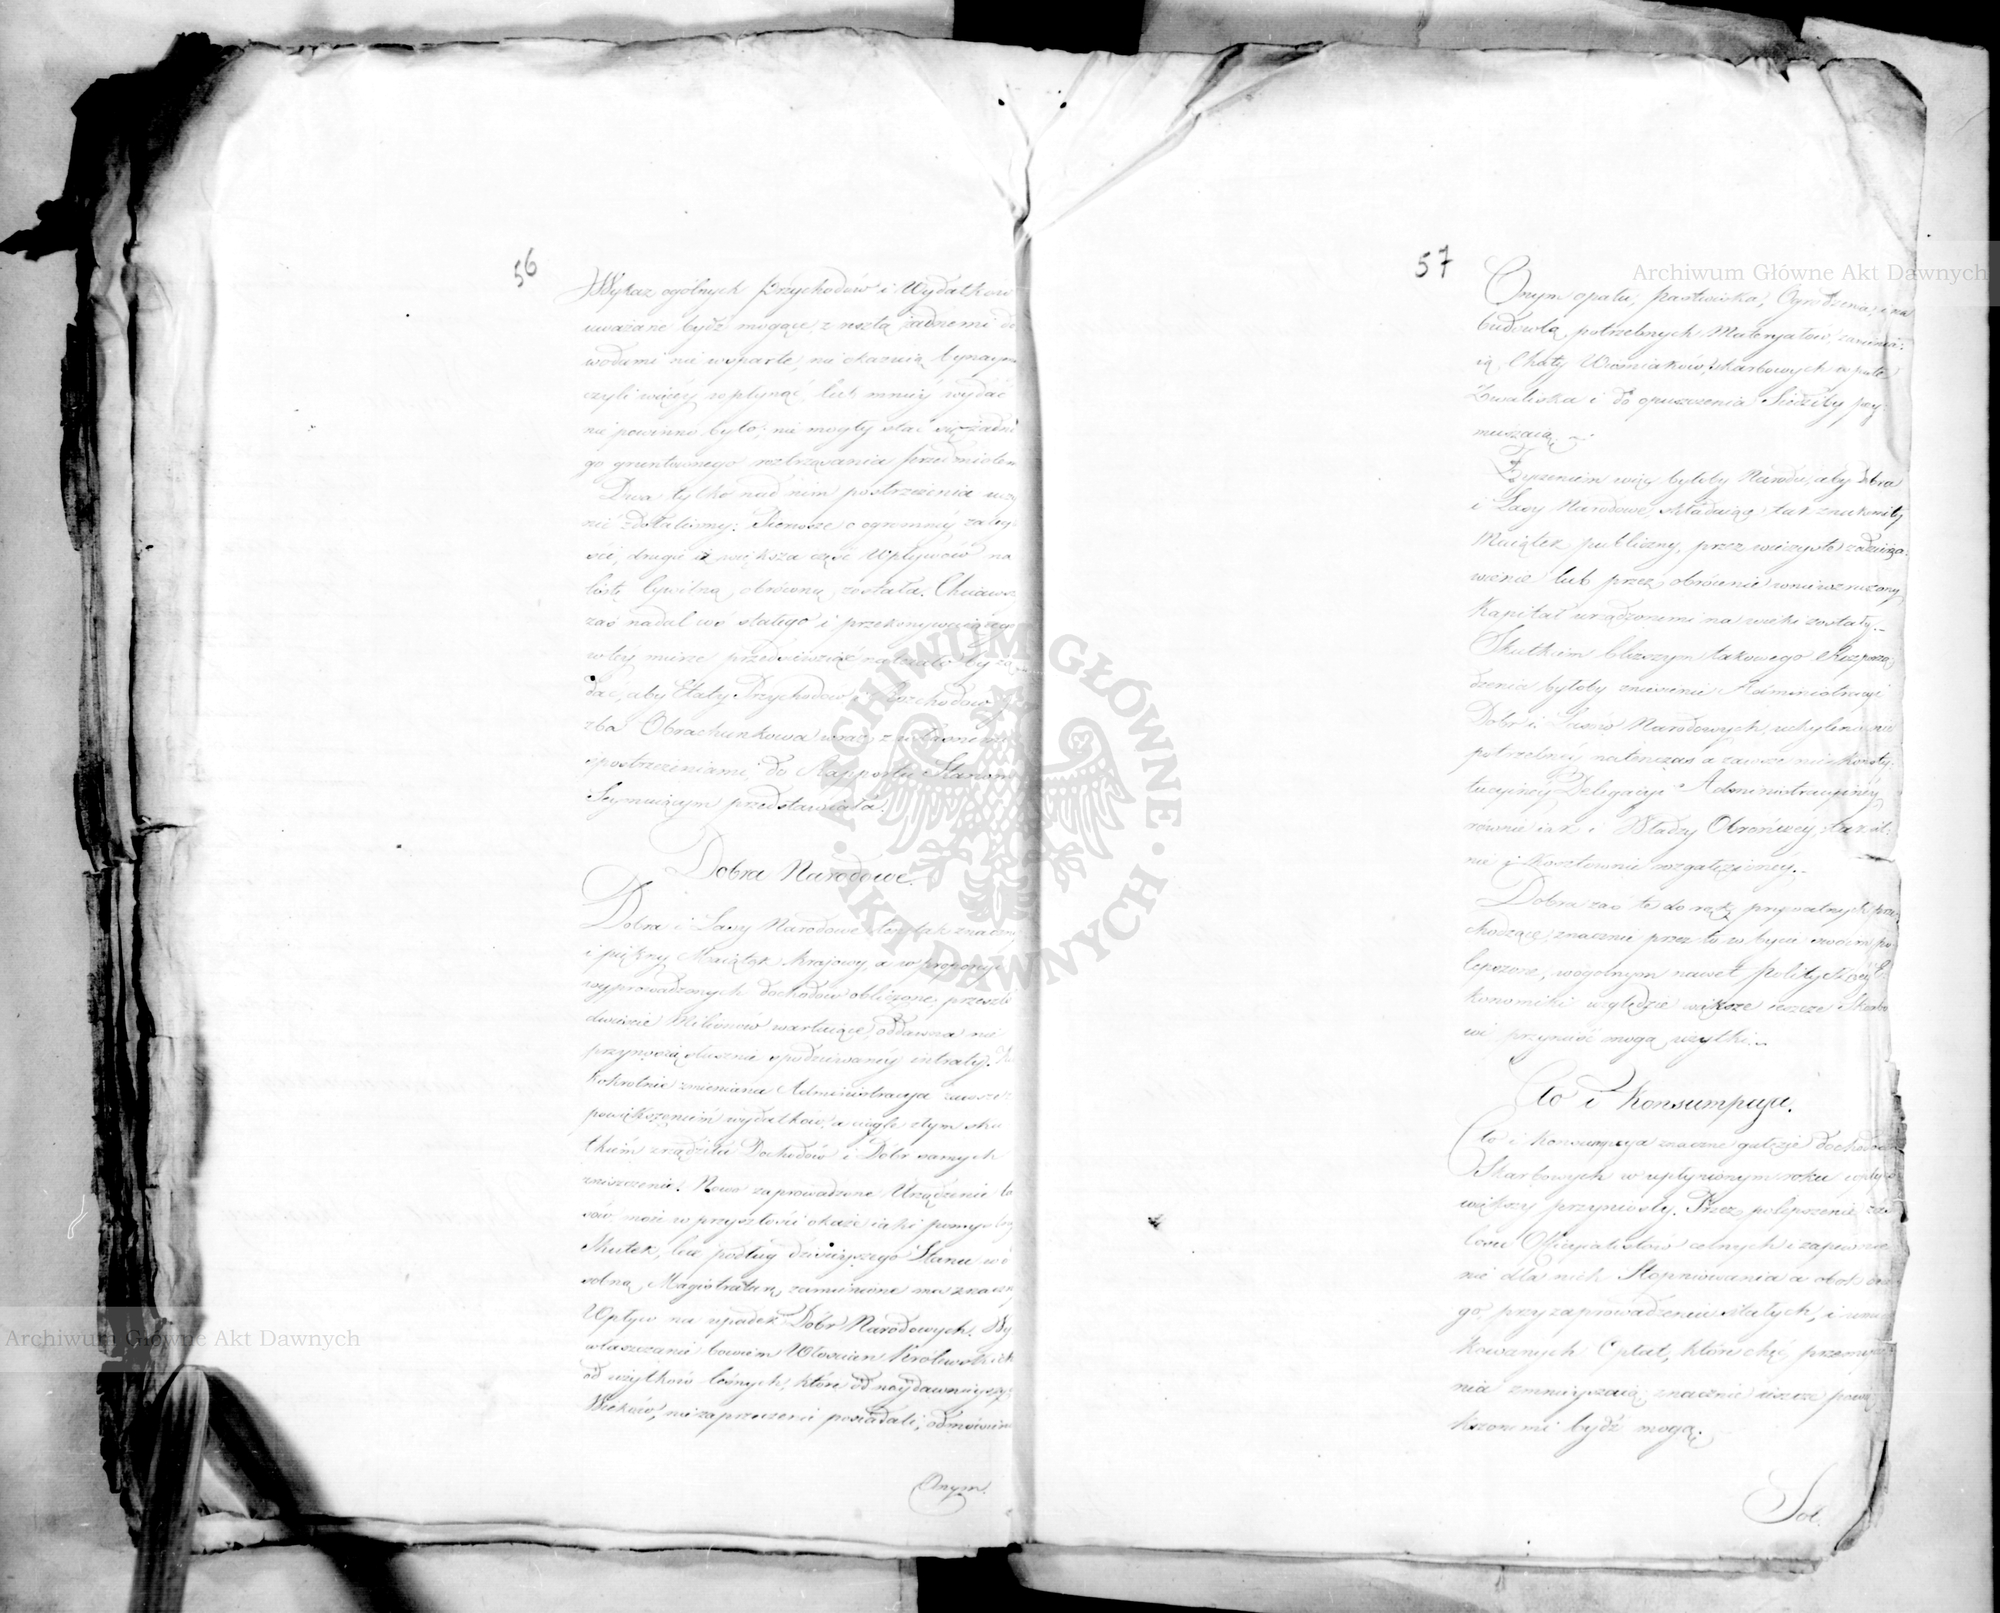 56
Wykaz ogólnych Przychodów i Wydatków
uważane bydź mogące z resztą żadnemi do
wodami nie wsparte, nie okazuią
czyli więcéy wpłynąć, lub mniéy wydać
nie powinno było; nie mogły stać się żadne
go gruntownego roztrząsania przedmiotem
Dwa tylko nad nim postrzeżenia uczy
nić zdołaliśmy: Pierwsze o ogromnéy zaleg
ści, drugie iż większa część Wpływów na
listę Cywilną obróconą została. Chcąc
zaś nadal coś stałego i przekonywaiącego
w téy mierze przedsięwziąść należało by żą
dać, aby Etaty Przychodów i Rozchodów
zba Obrachunkowa wraz z własnemi
spostrzeżeniami do Rapportu Stanom
Seymuiącym przedstawiała.
Dobra Narodowe.
Dobra i Lasy Narodowe ten tak znaczny
i piękny Maiątek kraiowy, a w proporcyi
wyprowadzonych dochodów obliczone, przeszło
dwieście Milionów wartuiące, oddawna nie
przynoszą słusznie spodziewanéy intraty.
kokrotnie zmieniana Administracya zawsze z
powiększeniem wydatków, a ciągle złym sku
tkiem zrządziła Dochodów i Dóbr samych
zniszczenie. Nowo zaprowadzone Urządzenie la
sów może w przyszłości okaże iaki pomyślny
skutek, lecz podług dzisieyszego Stanu w o
sobną Magistraturę zamienione ma znaczny
Wpływ na upadek Dóbr Narodowych. Wy
właszczanie bowiem Włościan Królewskich
od użytków leśnych, które od naydawnieyszych
Wieków, niezaprzeczenie posiadali, odmówienie
Onym.
57
Onym opału, pastwiska, Ogrodzenia, i na
budowlą potrzebnych Materyałów, zamienia=
ią Chaty Wieśniaków skarbowych w puste
Zwaliska i do opuszczenia Siedziby przy=
muszaią.
Życzeniem więc byłoby Narodu, aby Dobra
i Lasy Narodowe, składaiące tak znakomity
Maiątek publiczny, przez wieczyste zadzierża=
wienie lub przez obrócenie w niewzruszony
Kapitał urządzonemi na wieki zostały.
Skutkiem bliższym takowego Rozporzą
dzenia byłoby zniesienie Administracyi
Dobr i Lasów Narodowych, uchylenie nie
potrzebnéy natenczas a zawsze niekonsty=
tucyinéy Delegacyi Administracyinéy,
równie iak i Władzy Obrończéy, tak sil=
nie i kosztownie rozgałęzionéy.
Dobra zaś te do rąk prywatnych prze
chodzące, znacznie przez to w bycie swoim po
lepszone, w ogólnym nawet Politycznéy E
konomiki względzie większe ieszcze Skarbo
wi przynieść mogą użytki.
Cło i Konsumpcya.
Cło i Konsumpcya znaczne gałęzie dochodów
Skarbowych w upłynionym roku wpływ
większy przyniosły. Przez polepszenie zaś
losu Officyalistów celnych i zapewnie
nie dla nich Stopniowania a obok te
go przy zaprowadzeniu stałych, i umiar
kowanych Opłat, które chęć przemyca
nia zmnieyszaią; znacznie ieszcze powię
kszonemi bydź mogą.
Sol.
Archiwum Główne Akt Dawnych
Archiwum Główne Akt Dawnych
ARCHIWUM GŁÓWNE · AKT DAWNYCH ·